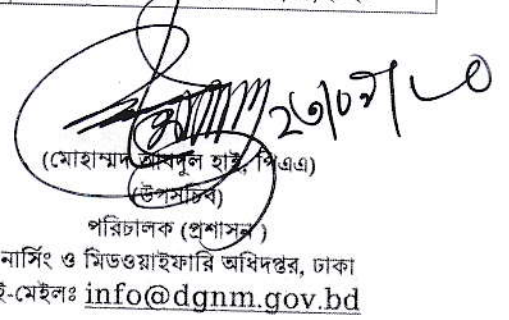 (মোহাম্মদ আবদুল হাই, পিএএ)
(উপসচিব)
পরিচালক (প্রশাসন)
নার্সিং ও মিডওয়াইফারি অধিদপ্তর, ঢাকা
ই-মেইলঃ info@dgnm.gov.bd